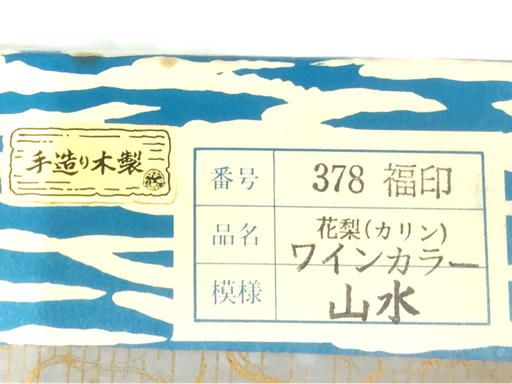 手造り木製
番号 378 福印
品名 花梨(カリン)
ワインカラー
模様 山水